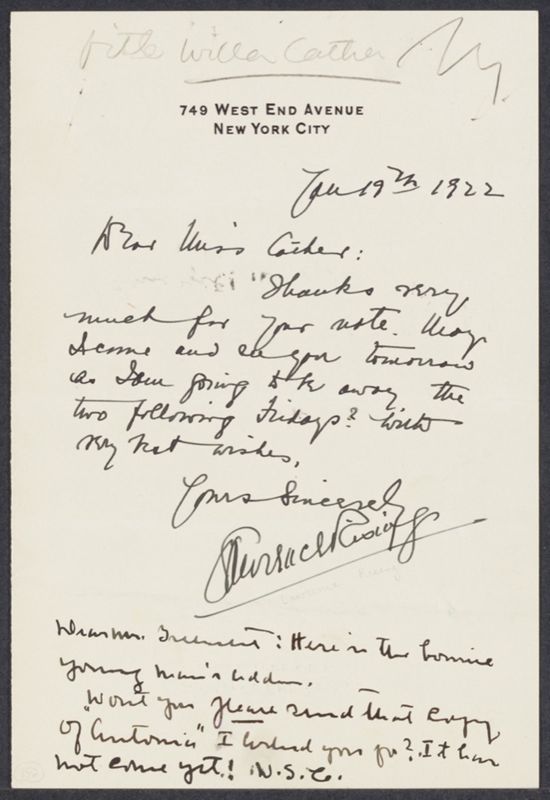 file Willa Cather
749 WEST END AVENUE
NEW YORK CITY
Jan 19th 1922
Dear Miss Cather:
Thanks very
much for your note. May
I come and see you tomorrow
as I am going to be away the
two following Fridays? With
very best wishes,
Yours Sincerely
Dear Mr. Greenslet: Here is the
young man's address.
"Won't you please send that copy
of Antonia" I asked you for? It has
not come yet! W.S.C.